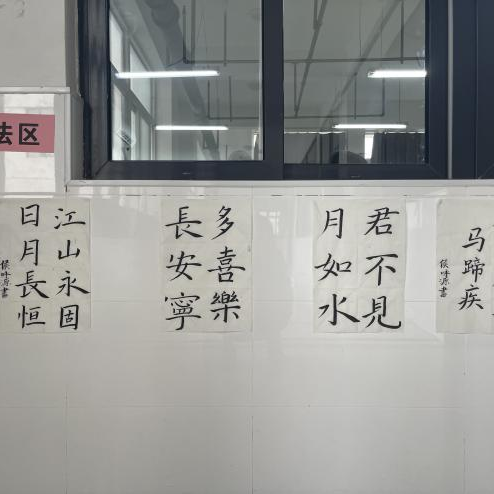 法区
江山永固
日月長恒
侯呼源書
多喜樂
長安寧
君不見
月如水
马蹄疾
侯呼源書